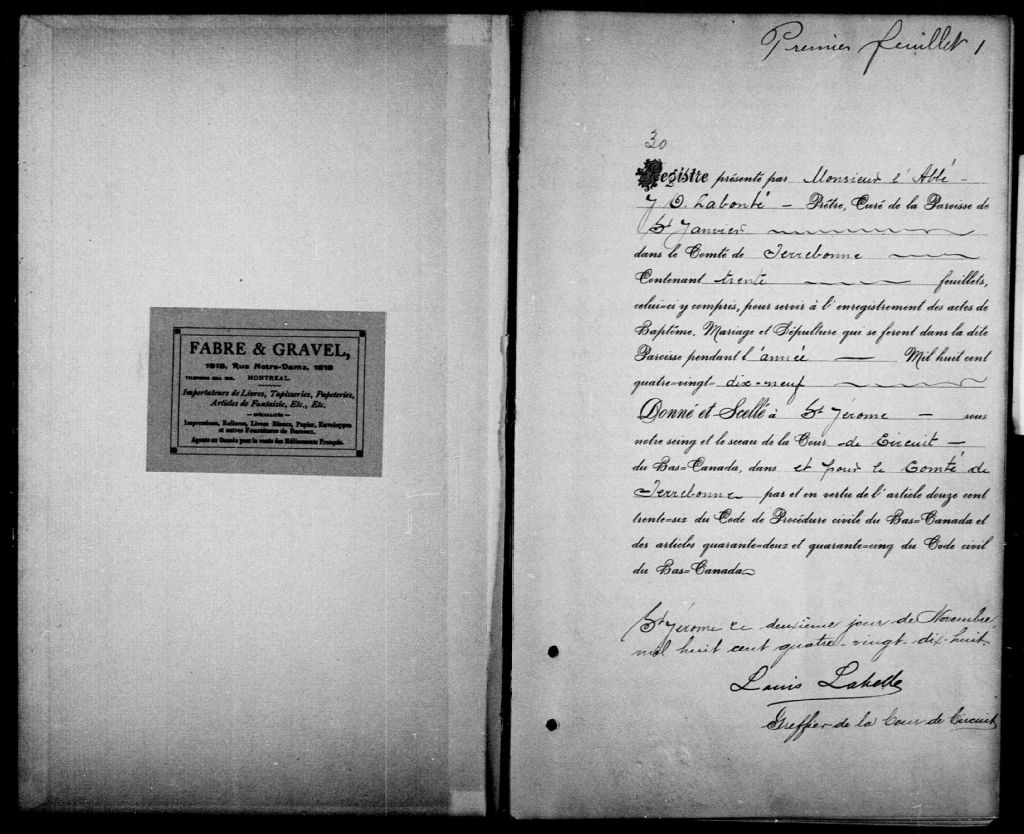 FABRE & GRAVEL,
1618, Rue Notre-Dame, 1618
MONTREAL.
Importateurs de Livres, Tapisseries, Papeteries,
Articles de Fantaisie, Etc., Etc.
— SPÉCIALITÉS —
Impressions, Reliures, Livres Blancs, Papier, Enveloppes
et autres Fournitures de Bureaux.
Agents au Canada pour la vente des Médicaments Français.
Premier feuillet 1
30
Registre présenté par Monsieur l'Abbé -
J O. Labonté - Prêtre, Curé de la Paroisse de
St Janvier
dans le Comté de Terrebonne
Contenant trente feuillets,
celui-ci y compris, pour servir à l'enregistrement des actes de
Baptême, Mariage et Sépulture qui se feront dans la dite
Paroisse pendant l'année — Mil huit cent
quatre-vingt- dix-neuf
Donné et Scellé à St Jérome - sous
notre seing et le sceau de la Cour de Circuit -
du Bas=Canada, dans et pour le Comté de
Terrebonne par et en vertu de l'article douze cent
trente=six du Code de Procédure civile du Bas=Canada et
des articles quarante=deux et quarante=cinq du Code civil
du Bas=Canada
St Jérome ce deuxième jour de Novembre
mil huit cent quatre-vingt-dix-huit.
Louis Labelle
Greffier de la Cour de Circuit